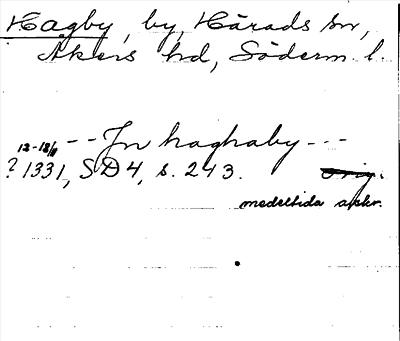 Hagby, by, Härads sn,
Åkers hd, Söderm. l.
-- Jn haghaby ---
12-18/11
? 1331, SD4, s. 243. orig.
medeltida avskr.